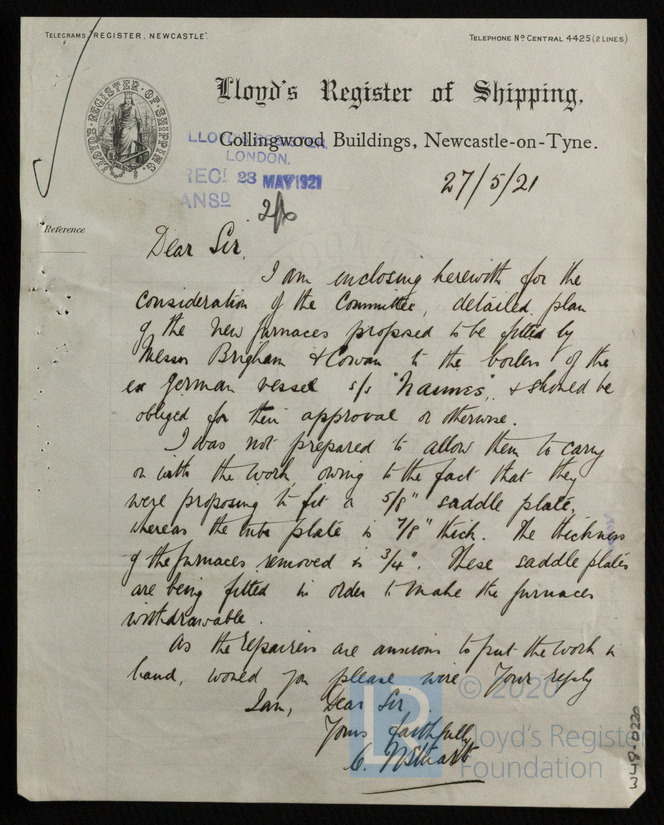 TELEGRAMS "REGISTER, NEWCASTLE".
TELEPHONE Nº CENTRAL 4425 (2 LINES)
LLOYDS REGISTER OF SHIPPING
Lloyd's Register of Shipping.
Collingwood Buildings, Newcastle-on-Tyne.
LLOYD'S REGISTER,
LONDON.
REC! 28 MAY 1921
ANSD
27/5/21
Reference
Dear Sir,
I am inclosing herewith for the
consideration of the Committee, detailed plan
of the new furnaces proposed to be fitted by
Messrs Brigham & Cowan to the boilers of the
ex German vessel s/s "Naimes", & should be
obliged for their approval or otherwise.
I was not prepared to allow them to carry
on with the work, owing to the fact that they
were proposing to fit a 5/8" saddle plate,
whereas the tube plate is 7/8" thick. The thickness
of the furnaces removed is 3/4". These saddle plates
are being fitted in order to make the furnaces
withdrawable.
As the repairers are anxious to put the work in
hand, would you please wire your reply
I am, Dear Sir,
Yours faithfully
C. Stuart
© 2020
LR
Lloyd's Register
Foundation
348-0220